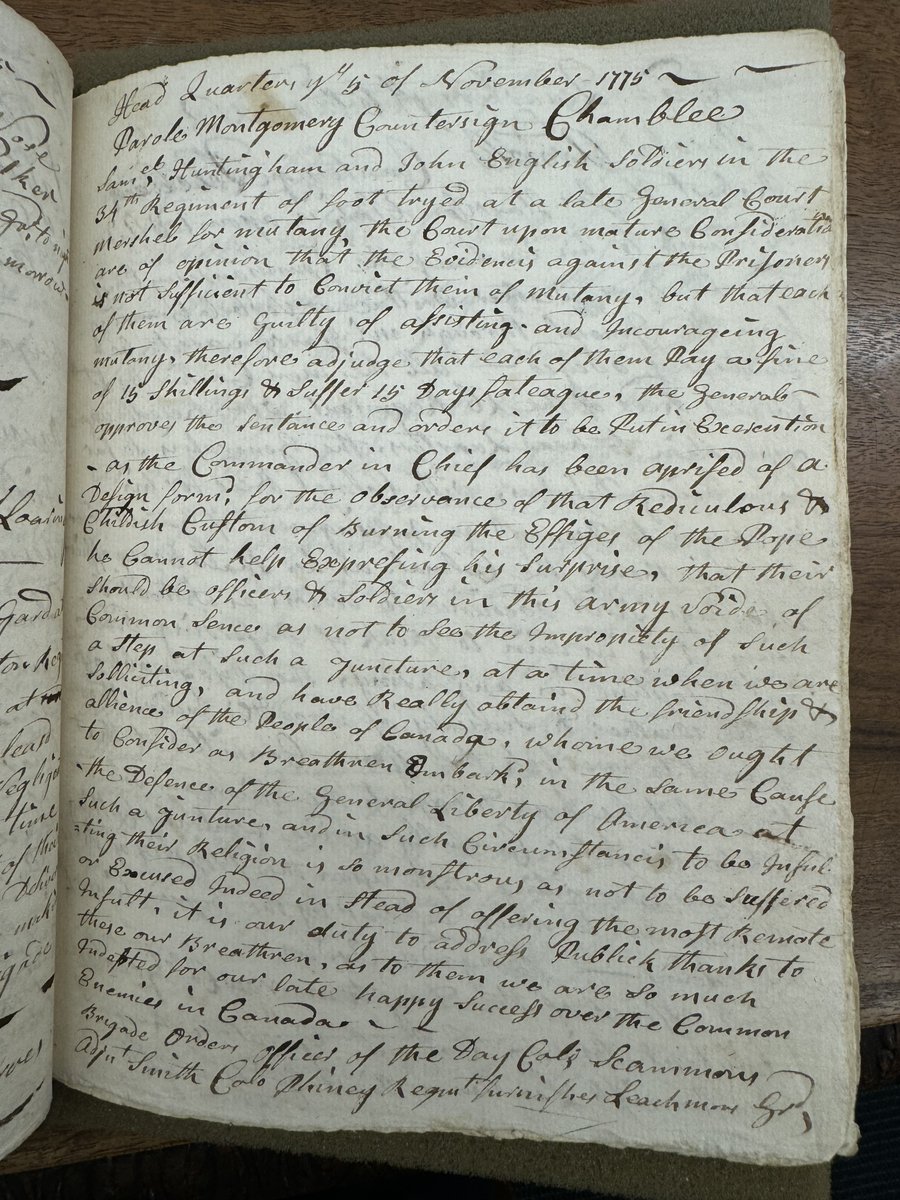 5
Head Quarters ye 5 of November 1775
Parole Montgomery Countersign Chamblee
Samel. Huntingham and John English Soldiers in the
34th Regiment of foot tryed at a late General Court
Mershel for mutany the Court upon mature Consideratio
are of opinion that the Evidencis against the Prisoners
is not Sufficient to Convict them of mutany, but that each
of them are Guilty of assisting and Incourageing
mutany, therefore adjudge that each of them Pay a fine
of 15 Shillings & Suffer 15 Days fateague, the General
opproves the Sentance and orders it to be Put in Excecution
as the Commander in Chief has been aprised of a
Design form'd for the observance of that Rediculous &
Childish Custom of Burning the Effiges of the Pope
he Cannot help Expresing his Surprise, that their
Should be officers & Soldiers in this army Voide of
Common Sence as not to See the Impropiety of such
a Step at Such a guncture, at a time when we are
Solliciting, and have Really obtaind the friendship &
allience of the People of Canada, whome we ought
to Consider as Breathren Embark'd in the Same Cause
the Defence of the General Liberty of America at
Such a gunture, and in Such Circumstancis to be Insul
=ting their Religion is so monstrous as not to be Suffered
or Excused Indeed in Stead of offering the most Remote
Insult, it is our duty to address Publick thanks to
these our Breathren, as to them we are so much
Indepted for our late happy Success over the Common
Enemies in Canada
Brigade Orders officer of the Day Colo Scammons
Adjnt Smith Colo Phiney Regmt furnishes Leachmors Grd,